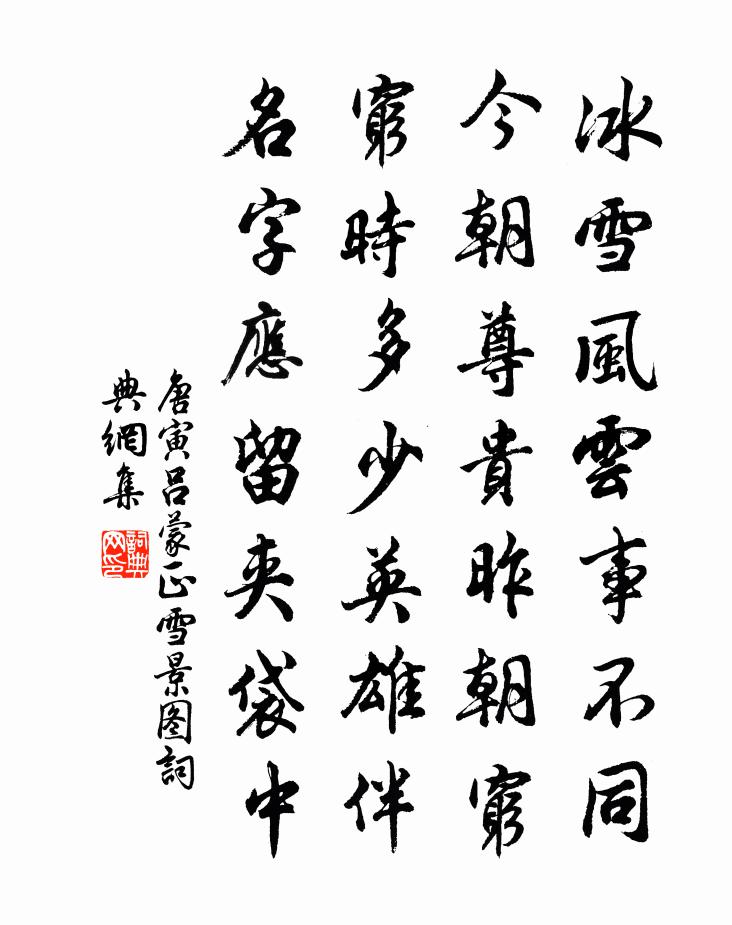 冰雪風雲事不同
今朝尊貴昨朝窮
窮時多少英雄伴
名字應留夾袋中
唐寅呂蒙正雪景图詞
典網集
詞典
网印